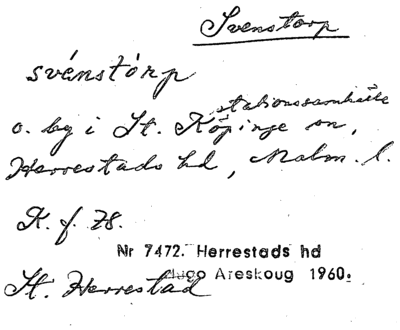 Svenstorp
svénstòrp
stationssamhälle
o. by i St. Köpinge sn,
Herrestads hd, Malm. l.
K. f. 78.
Nr 7472. Herrestads hd
Hugo Areskoug 1960.
St. Herrestad